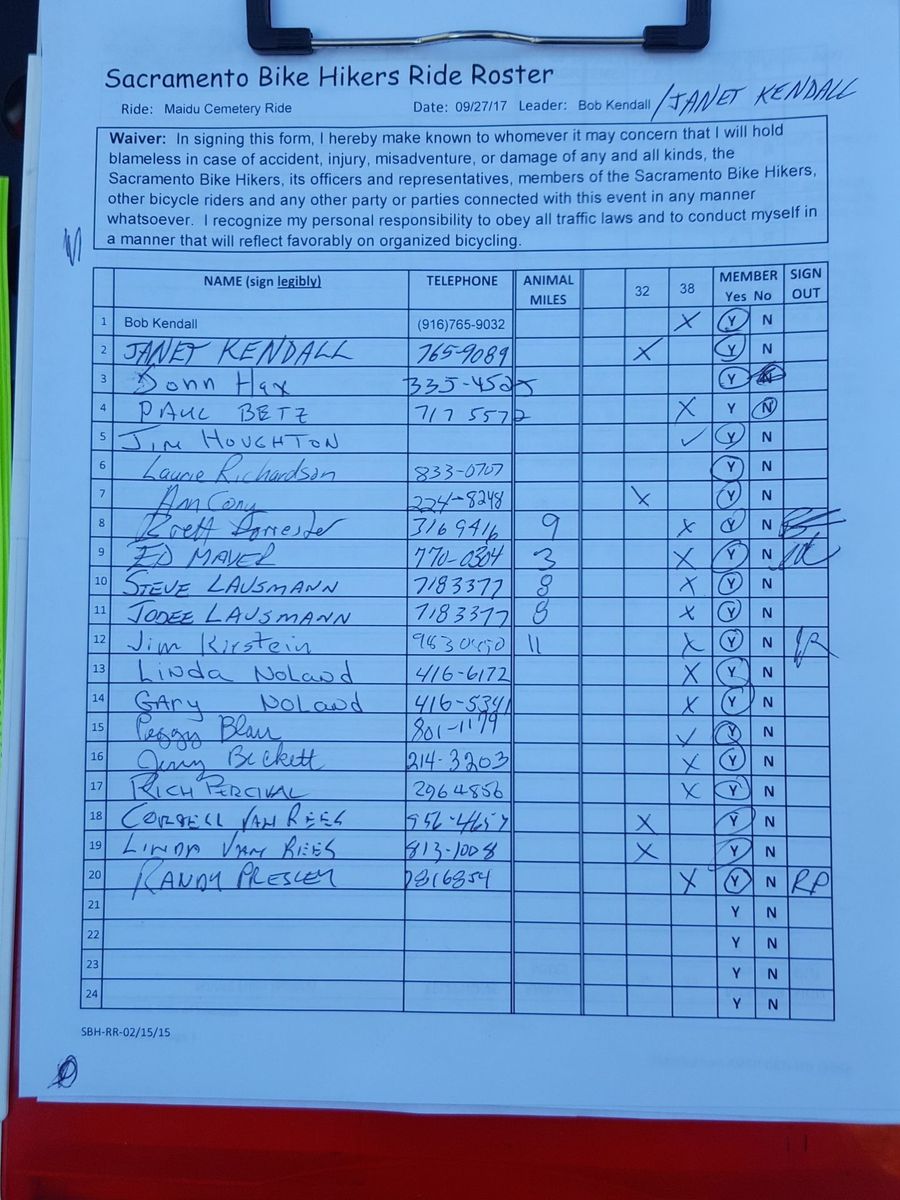 Sacramento Bike Hikers Ride Roster
Ride: Maidu Cemetery Ride Date: 09/27/17 Leader: Bob Kendall / JANET KENDALL
Waiver: In signing this form, I hereby make known to whomever it may concern that I will hold
blameless in case of accident, injury, misadventure, or damage of any and all kinds, the
Sacramento Bike Hikers, its officers and representatives, members of the Sacramento Bike Hikers,
other bicycle riders and any other party or parties connected with this event in any manner
whatsoever. I recognize my personal responsibility to obey all traffic laws and to conduct myself in
a manner that will reflect favorably on organized bicycling.
NAME (sign legibly) TELEPHONE ANIMAL MILES 32 38 MEMBER Yes No SIGN OUT
1 Bob Kendall (916)765-9032 X Y N
2 JANET KENDALL 765-9089 X Y N
3 Donn Hax 335-4525 Y N
4 PAUL BETZ 717 5572 X Y N
5 JIM HOUGHTON ✓ Y N
6 Laurie Richardson 833-0707 Y N
7 Ann Cony 224-8248 X Y N
8 Brett Forrester 3169416 9 X Y N
9 ED MAVER 770-0304 3 X Y N
10 STEVE LAUSMANN 7183377 8 X Y N
11 JODEE LAUSMANN 7183377 8 X Y N
12 Jim Kirstein 11 X Y N
13 Linda Noland 416-6172 X Y N
14 GARY NOLAND 416-5341 X Y N
15 Peggy Blair 801-1179 ✓ Y N
16 Jerry Beckett 214-3203 X Y N
17 RICH PERCIVAL 2964856 X Y N
18 CORDELL VAN REES 956-4657 X Y N
19 LINDA VAN REES 813-1008 X Y N
20 RANDY PRESLEY 7816854 X Y N RP
21 Y N
22 Y N
23 Y N
24 Y N
SBH-RR-02/15/15